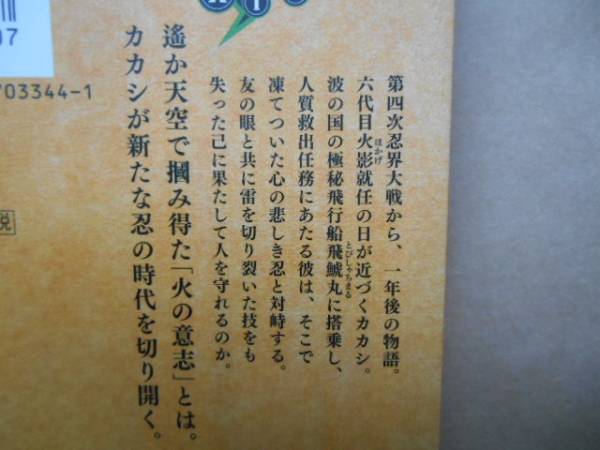 第四次忍界大戦から、一年後の物語。
六代目火影就任の日が近づくカカシ。
ほかげ
波の国の極秘飛行船飛鯱丸に搭乗し、
とびしゃちまる
人質救出任務にあたる彼は、そこで
凍てついた心の悲しき忍と対峙する。
友の眼と共に雷を切り裂いた技をも
失った己に果たして人を守れるのか。
遙か天空で摑み得た「火の意志」とは。
カカシが新たな忍の時代を切り開く。
703344-1
07
税